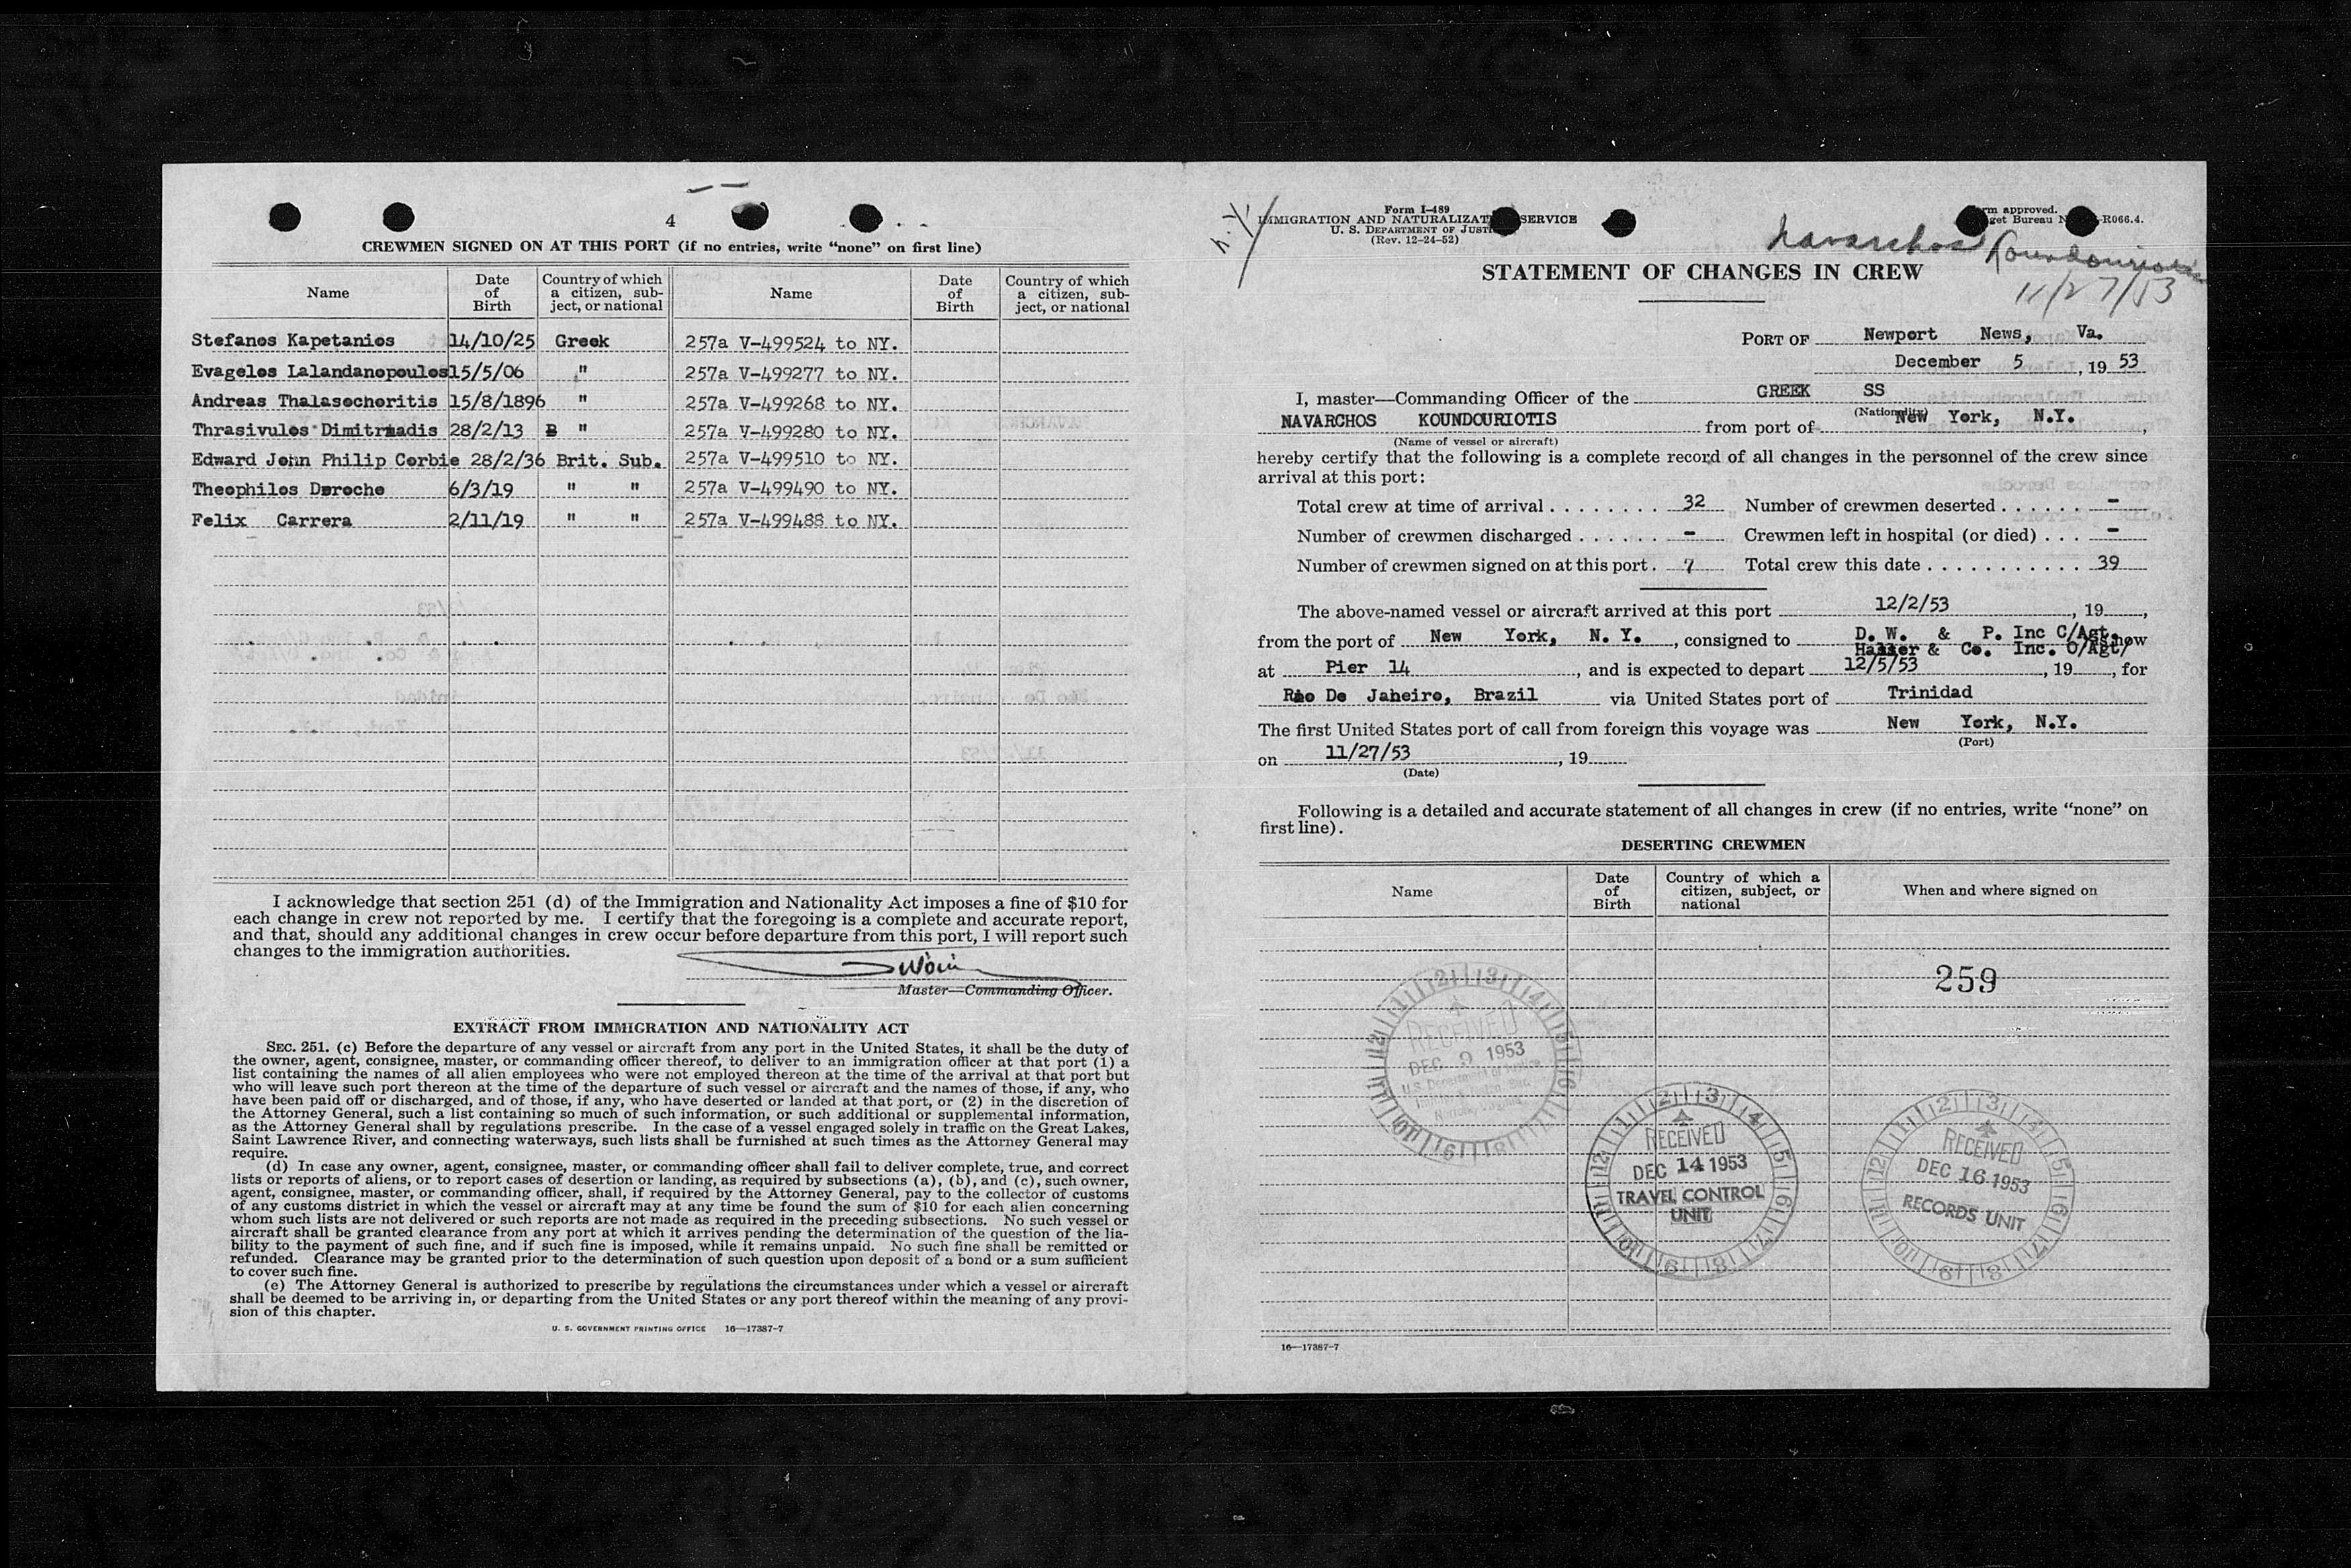 4
CREWMEN SIGNED ON AT THIS PORT (if no entries, write “none” on first line)
Name Date of Birth Country of which a citizen, subject, or national Name Date of Birth Country of which a citizen, subject, or national
Stefanos Kapetanios 14/10/25 Greek 257a V-499524 to NY.
Evagelos Lalandanopoulos 15/5/06 " 257a V-499277 to NY.
Andreas Thalasochoritis 15/8/1896 " 257a V-499268 to NY.
Thrasivulos Dimitriadis 28/2/13 " 257a V-499280 to NY.
Edward John Philip Corbie 28/2/36 Brit. Sub. 257a V-499510 to NY.
Theophilos Deroche 6/3/19 " " 257a V-499490 to NY.
Felix Carrera 2/11/19 " " 257a V-499488 to NY.
I acknowledge that section 251 (d) of the Immigration and Nationality Act imposes a fine of $10 for
each change in crew not reported by me. I certify that the foregoing is a complete and accurate report,
and that, should any additional changes in crew occur before departure from this port, I will report such
changes to the immigration authorities.
Master—Commanding Officer.
EXTRACT FROM IMMIGRATION AND NATIONALITY ACT
SEC. 251. (c) Before the departure of any vessel or aircraft from any port in the United States, it shall be the duty of
the owner, agent, consignee, master, or commanding officer thereof, to deliver to an immigration officer at that port (1) a
list containing the names of all alien employees who were not employed thereon at the time of the arrival at that port but
who will leave such port thereon at the time of the departure of such vessel or aircraft and the names of those, if any, who
have been paid off or discharged, and of those, if any, who have deserted or landed at that port, or (2) in the discretion of
the Attorney General, such a list containing so much of such information, or such additional or supplemental information,
as the Attorney General shall by regulations prescribe. In the case of a vessel engaged solely in traffic on the Great Lakes,
Saint Lawrence River, and connecting waterways, such lists shall be furnished at such times as the Attorney General may
require.
(d) In case any owner, agent, consignee, master, or commanding officer shall fail to deliver complete, true, and correct
lists or reports of aliens, or to report cases of desertion or landing, as required by subsections (a), (b), and (c), such owner,
agent, consignee, master, or commanding officer, shall, if required by the Attorney General, pay to the collector of customs
of any customs district in which the vessel or aircraft may at any time be found the sum of $10 for each alien concerning
whom such lists are not delivered or such reports are not made as required in the preceding subsections. No such vessel or
aircraft shall be granted clearance from any port at which it arrives pending the determination of the question of the lia-
bility to the payment of such fine, and if such fine is imposed, while it remains unpaid. No such fine shall be remitted or
refunded. Clearance may be granted prior to the determination of such question upon deposit of a bond or a sum sufficient
to cover such fine.
(e) The Attorney General is authorized to prescribe by regulations the circumstances under which a vessel or aircraft
shall be deemed to be arriving in, or departing from the United States or any port thereof within the meaning of any provi-
sion of this chapter.
U. S. GOVERNMENT PRINTING OFFICE 16—17387-7
N.Y.
Form I-489
IMMIGRATION AND NATURALIZATION SERVICE
U. S. DEPARTMENT OF JUSTICE
(Rev. 12-24-52)
Form approved.
Budget Bureau No. -R066.4.
Navarchos Koundouriotis
11/27/53
STATEMENT OF CHANGES IN CREW
PORT OF Newport News, Va.
December 5, 19 53
I, master—Commanding Officer of the GREEK SS
(Nationality)
NAVARCHOS KOUNDOURIOTIS from port of New York, N.Y.,
(Name of vessel or aircraft)
hereby certify that the following is a complete record of all changes in the personnel of the crew since
arrival at this port:
Total crew at time of arrival . . . . . . . . 32 Number of crewmen deserted . . . . . . -
Number of crewmen discharged . . . . . . - Crewmen left in hospital (or died) . . . -
Number of crewmen signed on at this port . 7 Total crew this date . . . . . . . . . . . . 39
The above-named vessel or aircraft arrived at this port 12/2/53, 19 ,
from the port of New York, N. Y., consigned to D. W. & P. Inc C/Agt. is now
Hasler & Co. Inc. O/Agt/
at Pier 14, and is expected to depart 12/5/53, 19 , for
Rio De Janeiro, Brazil via United States port of Trinidad
The first United States port of call from foreign this voyage was New York, N.Y.
(Port)
on 11/27/53, 19
(Date)
Following is a detailed and accurate statement of all changes in crew (if no entries, write “none” on
first line).
DESERTING CREWMEN
Name Date of Birth Country of which a citizen, subject, or national When and where signed on
259
RECEIVED
DEC 9 1953
U.S. Department of Justice
RECEIVED
DEC 14 1953
TRAVEL CONTROL
UNIT
RECEIVED
DEC 16 1953
RECORDS UNIT
16—17387-7